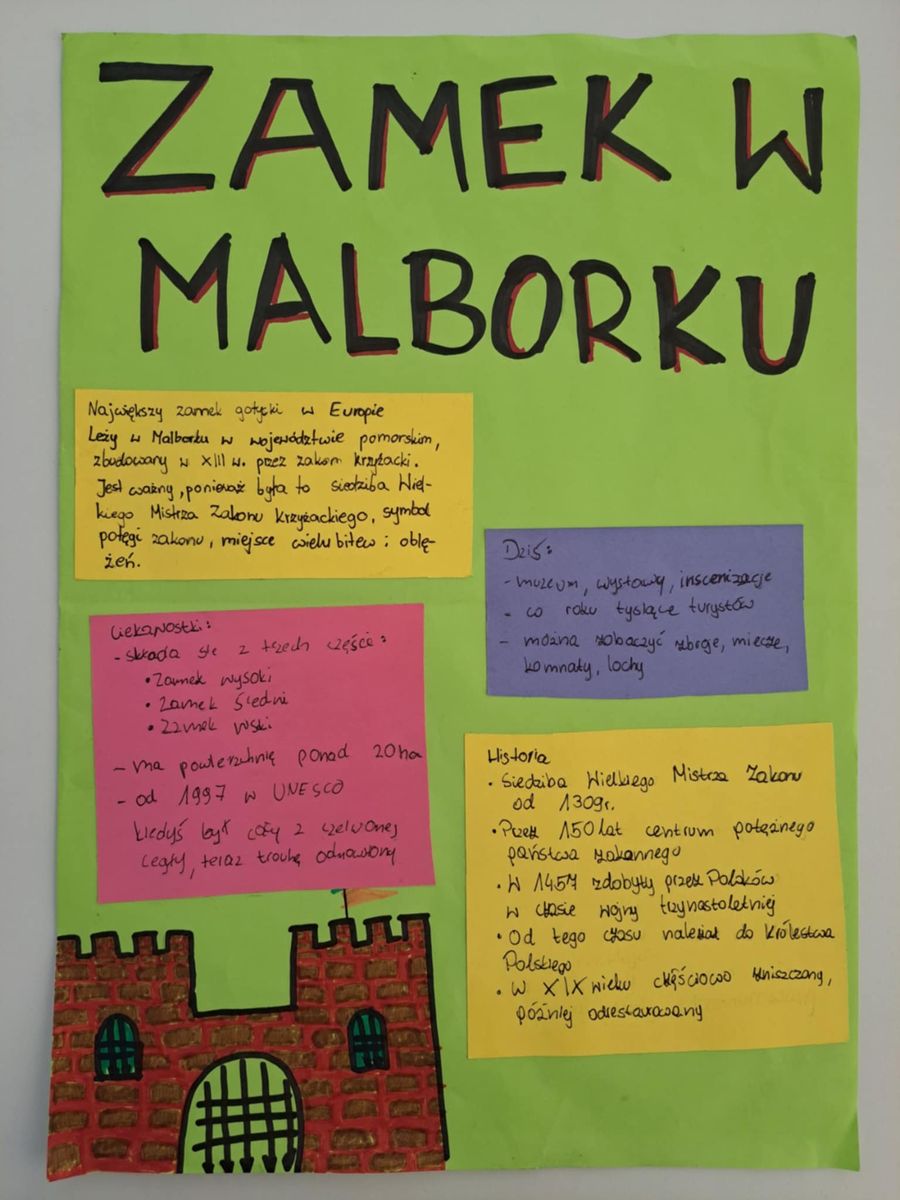 ZAMEK W
MALBORKU
Największy zamek gotycki w Europie
Leży w Malborku w województwie pomorskim,
zbudowany w XIII w. przez zakon krzyżacki.
Jest ważny, ponieważ była to siedziba Wiel-
kiego Mistrza Zakonu Krzyżackiego, symbol
potęgi zakonu, miejsce wielu bitew i oblę-
żeń.
Dziś:
- muzeum, wystawy, inscenizacje
- co roku tysiące turystów
- można zobaczyć zbroje, miecze,
komnaty, lochy
Ciekawostki:
- składa się z trzech części:
• Zamek wysoki
• Zamek średni
• Zamek niski
- ma powierzchnię ponad 20ha
- od 1997 w UNESCO
kiedyś był cały z czerwonej
cegły, teraz trochę odnowiony
Historia
• Siedziba Wielkiego Mistrza Zakonu
od 1309r.
• Przez 150 lat centrum potężnego
państwa zakonnego
• W 1457 zdobyty przez Polaków
w czasie wojny trzynastoletniej
• Od tego czasu należał do Królestwa
Polskiego
• W XIX wieku częściowo zniszczony,
później odrestaurowany